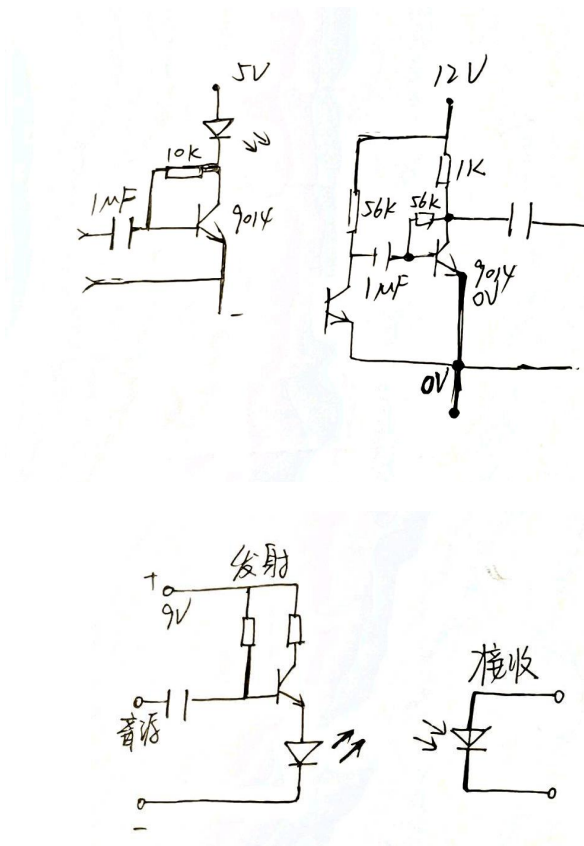 5V
10K
1μF
9014
-
12V
1K
56K
56K
1μF
9014
0V
0V
发射
+
9V
音源
-
接收